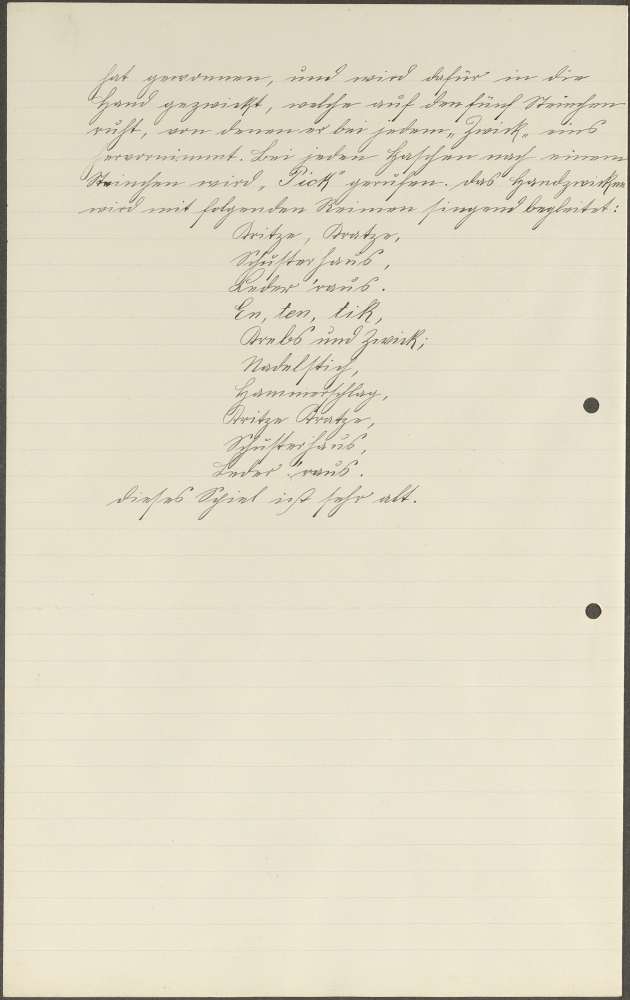 hat gewonnen, und wird dafür in die
Hand gezwickt, welche auf den fünf Steinchen
ruht, von denen er bei jedem „Zwick„ eins
hervornimmt. Bei jeden Haschen nach einem
Steinchen wird „Pick" gerufen. Das Handzwicken
wird mit folgenden Reimen singend begleitet:
Kritze, Kratze,
Schusterhaus,
Leder 'raus.
En, ten, tik,
Krebs und Zwick;
Nadelstich,
Hammerschlag,
Kritze Kratze,
Schusterhaus,
Leder 'raus.
Dieses Spiel ist sehr alt.